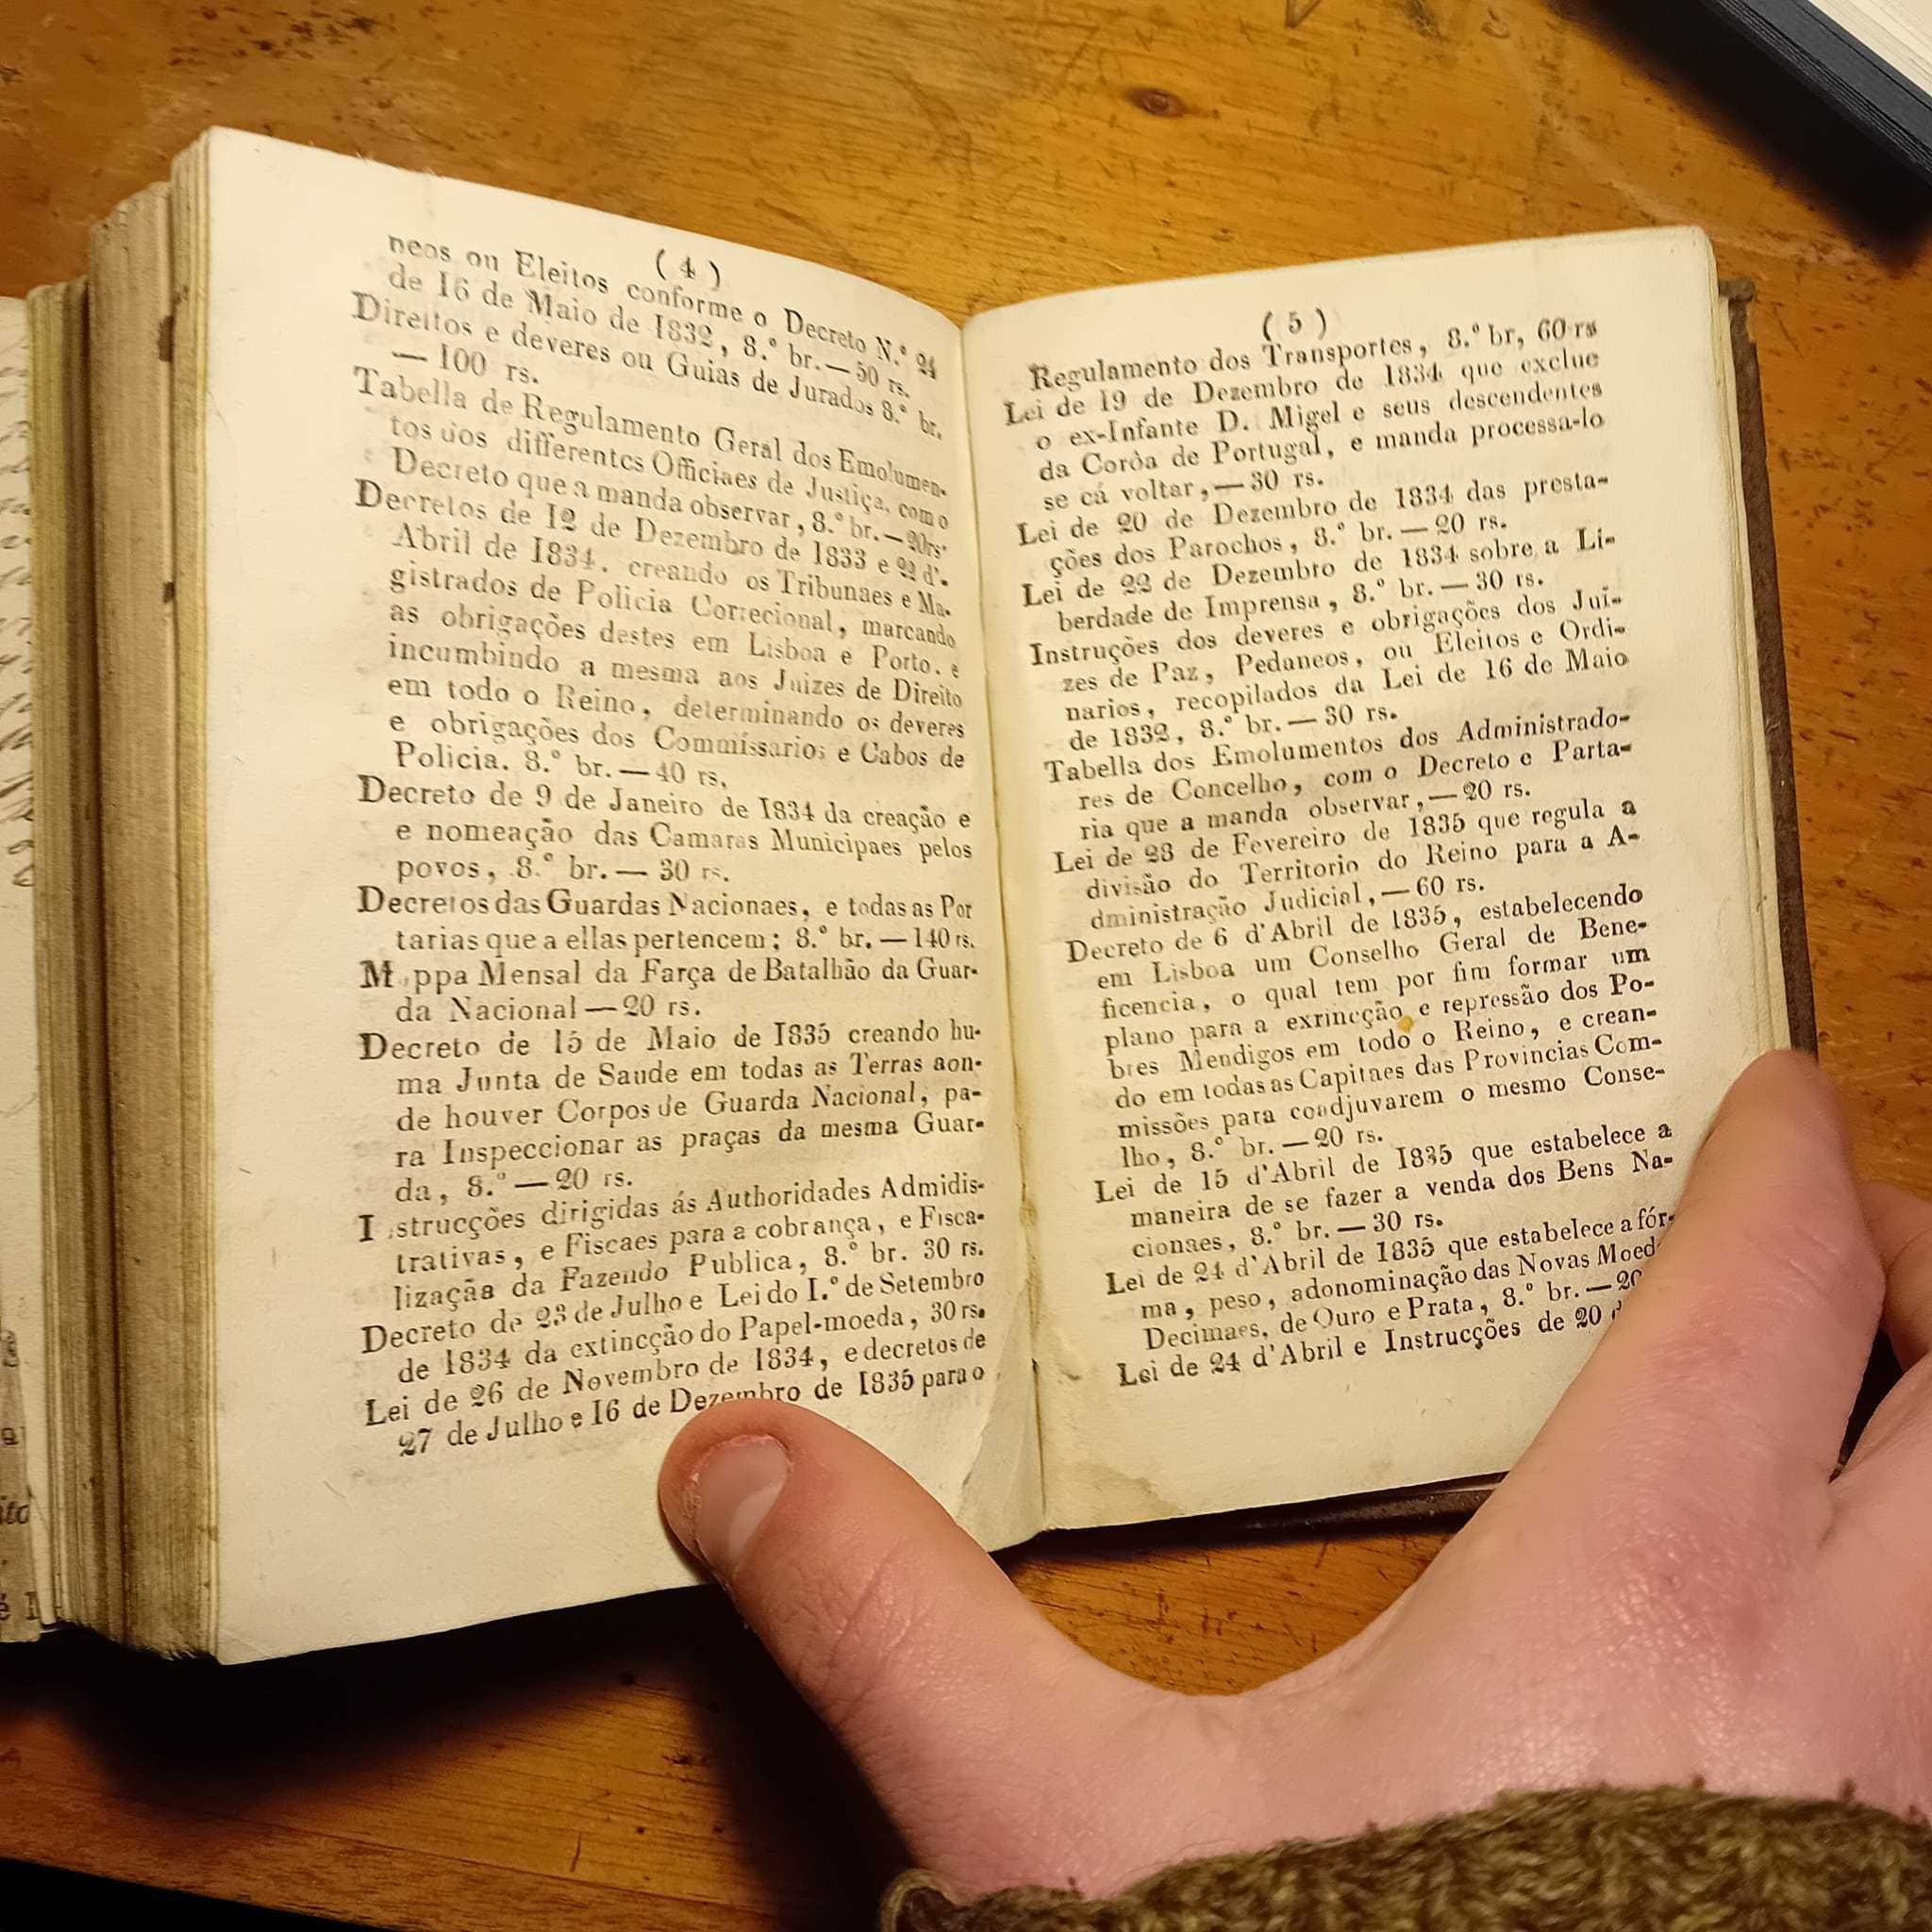 ( 4 )
neos ou Eleitos conforme o Decreto N.º 24
de 16 de Maio de 1832, 8.º br. — 50 rs.
Direitos e deveres ou Guias de Jurados 8.º br.
— 100 rs.
Tabella de Regulamento Geral dos Emolumen-
tos dos differentes Officiaes de Justiça, com o
Decreto que a manda observar, 8.º br. — 20 rs.
Decretos de 12 de Dezembro de 1833 e 22 d'.
Abril de 1834. creando os Tribunaes e Ma-
gistrados de Policia Correcional, marcando
as obrigações destes em Lisboa e Porto. e
incumbindo a mesma aos Juizes de Direito
em todo o Reino, determinando os deveres
e obrigações dos Commissarios e Cabos de
Policia. 8.º br. — 40 rs.
Decreto de 9 de Janeiro de 1834 da creação e
e nomeação das Camaras Municipaes pelos
povos, 8.º br. — 30 rs.
Decretos das Guardas Nacionaes, e todas as Por
tarias que a ellas pertencem; 8.º br. — 140 rs.
M ppa Mensal da Farça de Batalhão da Guar-
da Nacional — 20 rs.
Decreto de 15 de Maio de 1835 creando hu-
ma Junta de Saude em todas as Terras aon-
de houver Corpos de Guarda Nacional, pa-
ra Inspeccionar as praças da mesma Guar-
da, 8.º — 20 rs.
I strucções dirigidas ás Authoridades Admidis-
trativas, e Fiscaes para a cobrança, e Fisca-
lização da Fazendo Publica, 8.º br. 30 rs.
Decreto de 23 de Julho e Lei do I.º de Setembro
de 1834 da extincção do Papel-moeda, 30 rs.
Lei de 26 de Novembro de 1834, e decretos de
27 de Julho e 16 de Dezembro de 1835 para o
( 5 )
Regulamento dos Transportes, 8.º br, 60 rs
Lei de 19 de Dezembro de 1834 que exclue
o ex-Infante D. Migel e seus descendentes
da Corôa de Portugal, e manda processa-lo
se cá voltar, — 30 rs.
Lei de 20 de Dezembro de 1834 das presta-
ções dos Parochos, 8.º br. — 20 rs.
Lei de 22 de Dezembro de 1834 sobre a Li-
berdade de Imprensa, 8.º br. — 30 rs.
Instruções dos deveres e obrigações dos Jui-
zes de Paz, Pedaneos, ou Eleitos e Ordi-
narios, recopilados da Lei de 16 de Maio
de 1832, 8.º br. — 30 rs.
Tabella dos Emolumentos dos Administrado-
res de Concelho, com o Decreto e Parta-
ria que a manda observar, — 20 rs.
Lei de 28 de Fevereiro de 1835 que regula a
divisão do Territorio do Reino para a A-
dministração Judicial, — 60 rs.
Decreto de 6 d'Abril de 1835, estabelecendo
em Lisboa um Conselho Geral de Bene-
ficencia, o qual tem por fim formar um
plano para a exrincção e repressão dos Po-
bres Mendigos em todo o Reino, e crean-
do em todas as Capitaes das Provincias Com-
missões para coadjuvarem o mesmo Conse-
lho, 8.º br. — 20 rs.
Lei de 15 d'Abril de 1835 que estabelece a
maneira de se fazer a venda dos Bens Na-
cionaes, 8.º br. — 30 rs.
Lei de 24 d'Abril de 1835 que estabelece a fór-
ma, peso, adonominação das Novas Moed
Decimaes, de Ouro e Prata, 8.º br. — 20
Lei de 24 d'Abril e Instrucções de 20 d